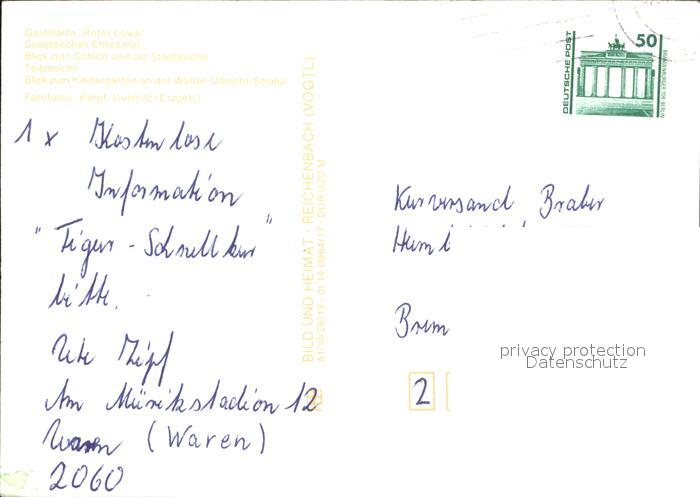 Gaststätte „Roter Löwe"
Sowjetisches Ehrenmal
Blick zum Schloß und zur Stadtkirche
Teilansicht
Blick zum Kindergarten an der Walter-Ulbricht-Straße
Farbfotos: Karpf, Oelsnitz (Erzgeb.)
1 x Kostenlose
Information
"Figur - Schnellkur"
bitte.
Ute Zipf
Am Müritzstadion 12
Waren (Waren)
2060
BILD UND HEIMAT · REICHENBACH (VOGTL)
A1/III/26/13 · 01 14 0964/17 DDR 0,20 M
DEUTSCHE POST
50
BRANDENBURGER TOR BERLIN
Kurversand Braber
Heml
Brem
2
privacy protection
Datenschutz